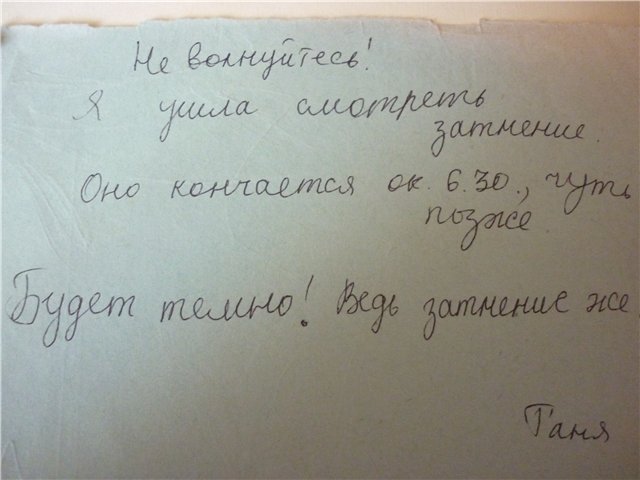 Не волнуйтесь!
Я ушла смотреть
затмение.
Оно кончается ок. 6.30., чуть
позже.
Будет темно! Ведь затмение же.
Таня